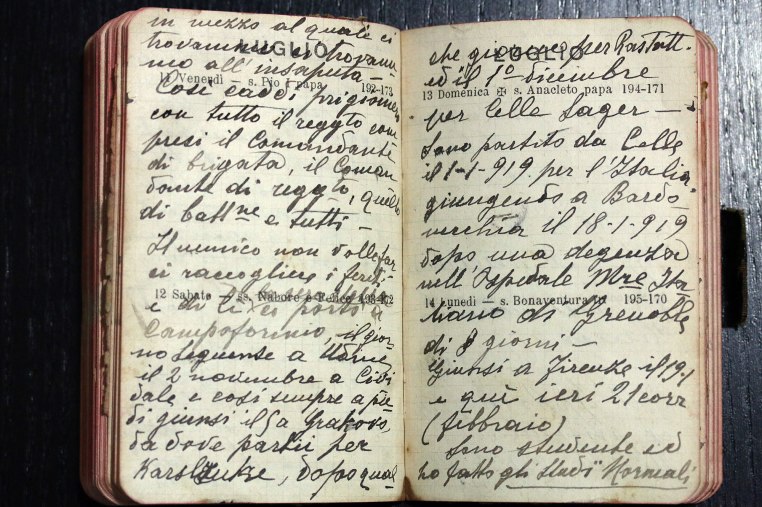 in mezzo al quale ci
trovavamo e ci trovam
LUGLIO
mo all'insaputa —
11 Venerdì — s. Pio I papa 192-173
Così caddi prigioniero
con tutto il reggto com
presi il Comandante
di brigata, il Coman
dante di reggto, quello
di battne e tutti —
Il nemico non volle far
ci raccogliere i feriti
12 Sabato — ss. Nabore e Felice 193-172
e di lì ci portò a
Campoformio, il gior
no seguente a Udine
il 2 novembre a Civi
dale e così sempre a pie
di giunsi il 5 a Grakovo,
da dove partii per
Karslruke, dopo qual
che giorno per Rastatt
LUGLIO
ed il 1° dicembre
13 Domenica ✠ s. Anacleto papa 194-171
per Celle Lager —
Sono partito da Celle
il 1-1-919 per l'Italia
giungendo a Bardo
necchia il 18-1-919
dopo una degenza
nell'Ospedale Mre Ita
14 Lunedì — s. Bonaventura 195-170
liano di Grenoble
di 8 giorni —
Giunsi a Firenze il 19-1
e qui ieri 21 corr
(febbraio)
Sono studente ed
ho fatto gli studi Normali